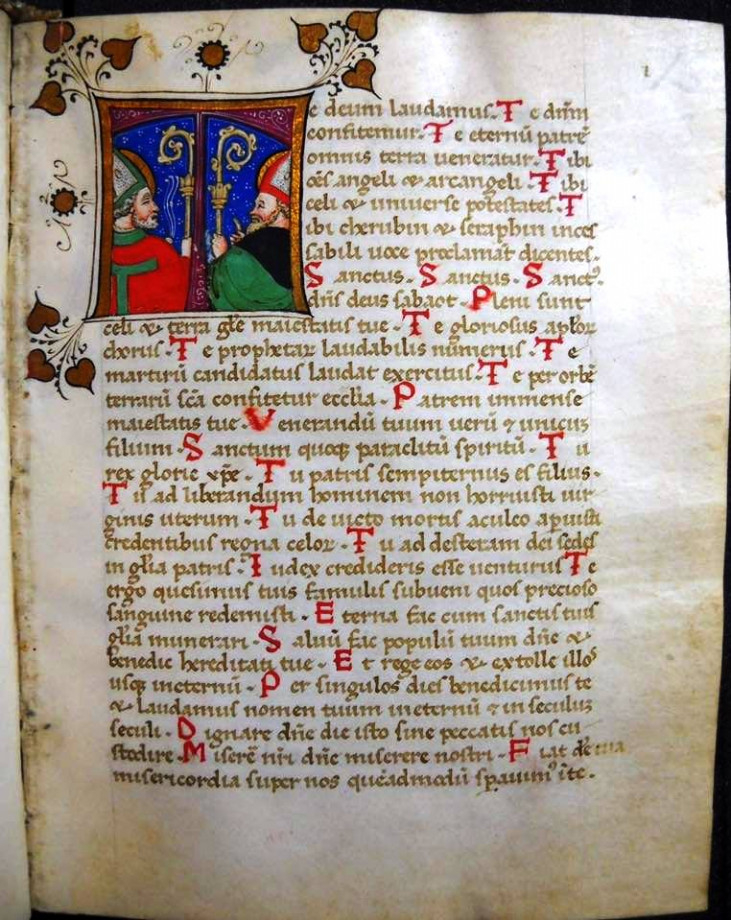 1
e deum laudamus. T e dnm̄
confitemur. T e eternū patrē
omnis terra ueneratur. T ibi
oēs angeli & arcangeli. T ibi
celi & uniuerse potestates. T
ibi cherubin & seraphin inces
sabili uoce proclamāt dicentes.
S anctus. S anctus. S anctꝰ.
dn̄s deus sabaot. P leni sunt
celi & terra gl̄e maiestatis tue. T e gloriosus apl̄oꝝ
chorus. T e prophetaꝝ laudabilis numerus. T e
martirū candidatus laudat exercitus. T e per orbē
terrarū sc̄a confitetur eccl̄ia. P atrem immense
maiestatis tue. V enerandū tuum uerū ⁊ unicū
filium. S anctum quoqꝫ paraclitū spiritū. T u
rex glorie xp̄e. T u patris sempiternus es filius.
T u ad liberandum hominem non horruisti uir
ginis uterum. T u de uicto mortis aculeo apuisti
credentibus regna celoꝝ. T u ad desteram dei sedes
in gl̄ia patris. I udex crederis esse uenturus T e
ergo quesumus tuis famulis subueni quos precioso
sanguine redemisti. E terna fac cum sanctis tuis
gl̄ia munerari. S aluū fac populū tuum dn̄e &
benedic hereditati tue. E t rege eos & extolle illos
usqꝫ in eternū. P er singulos dies benedicimus te
& laudamus nomen tuum in eternū ⁊ in seculū
seculi. D ignare dn̄e die isto sine peccatis nos cu
stodire. M iserē nr̄i dn̄e miserere nostri. F iat dn̄e tua
misericordia super nos queadmodū sp̄auimꝰ ī te.